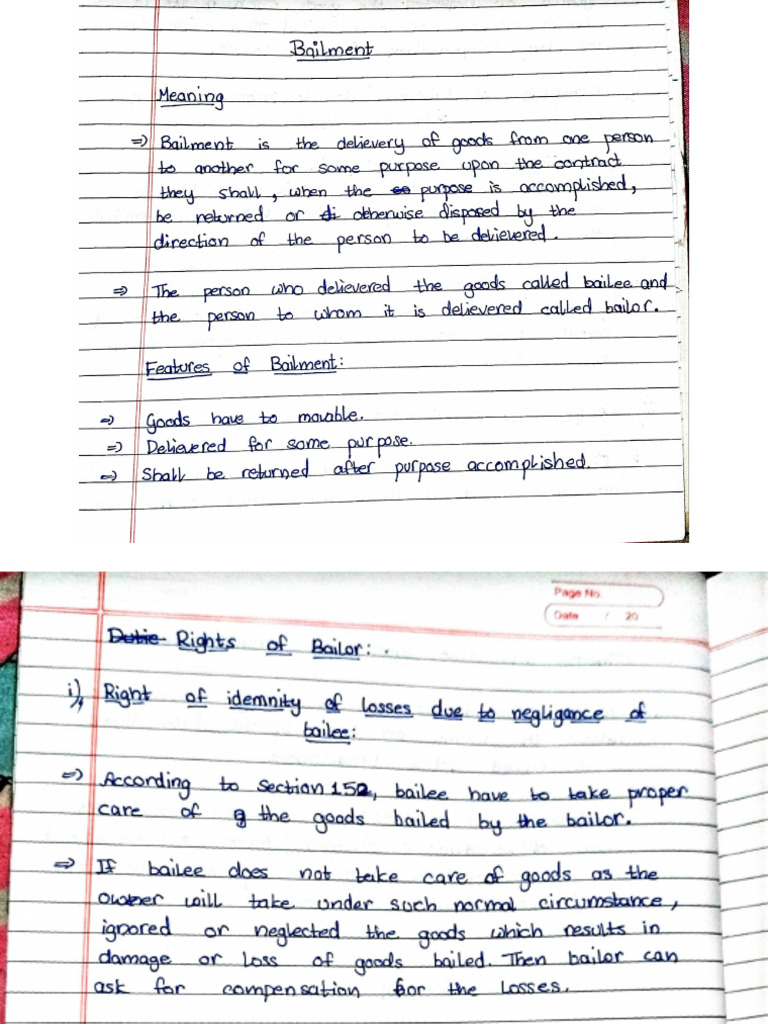 Bailment
Meaning
⇒ Bailment is the delievery of goods from one person
to another for some purpose upon the contract
they shall, when the purpose is accomplished,
be returned or otherwise disposed by the
direction of the person to be delievered.
⇒ The person who delievered the goods called bailee and
the person to whom it is delievered called bailor.
Features of Bailment:
⇒ Goods have to movable.
⇒ Delievered for some purpose.
⇒ Shall be returned after purpose accomplished.
Page No.
Date / 20
Dutie Rights of Bailor:
i) Right of idemnity of losses due to negligance of
bailee:
⇒ According to section 152, bailee have to take proper
care of the goods bailed by the bailor.
⇒ If bailee does not take care of goods as the
owner will take under such normal circumstance,
ignored or neglected the goods which results in
damage or loss of goods bailed. Then bailor can
ask for compensation for the losses.